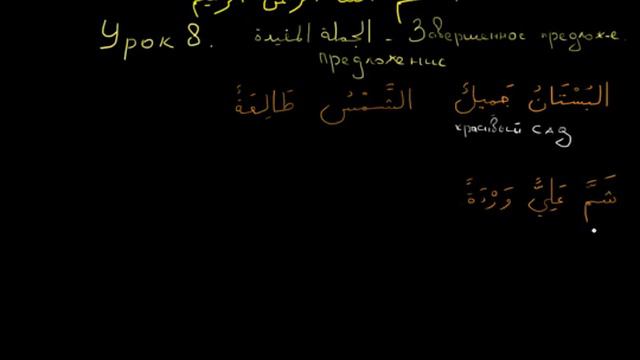 بسم الله الرحمن الرحيم
Урок 8. الجملة المفيدة - Завершенное предлож-е.
предложение
البُسْتَانُ جَمِيلٌ الشَّمْسُ طَالِعَةٌ
красивый сад
شَمَّ عَلِيٌّ وَرْدَةً